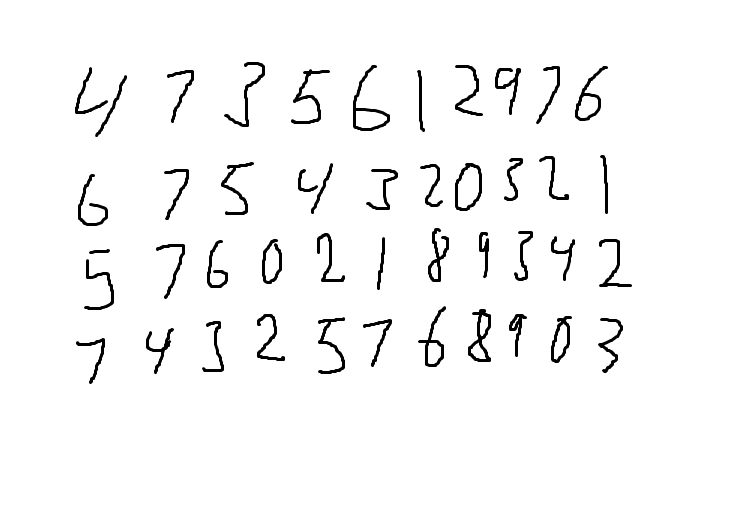 4 7 3 5 6 1 2 9 7 6
6 7 5 4 3 2 0 3 2 1
5 7 6 0 2 1 8 9 3 4 2
7 4 3 2 5 7 6 8 9 0 3